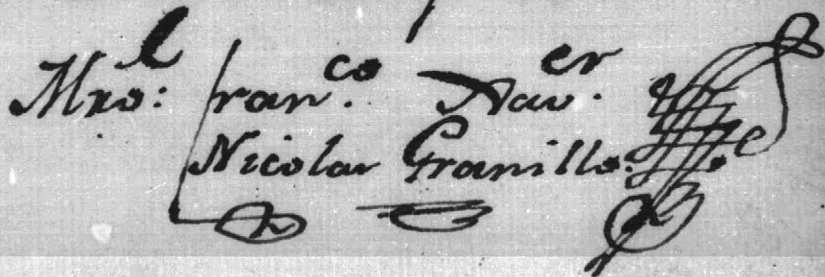 Mro: Fran.co Xav.er
Nicolas Granillo.